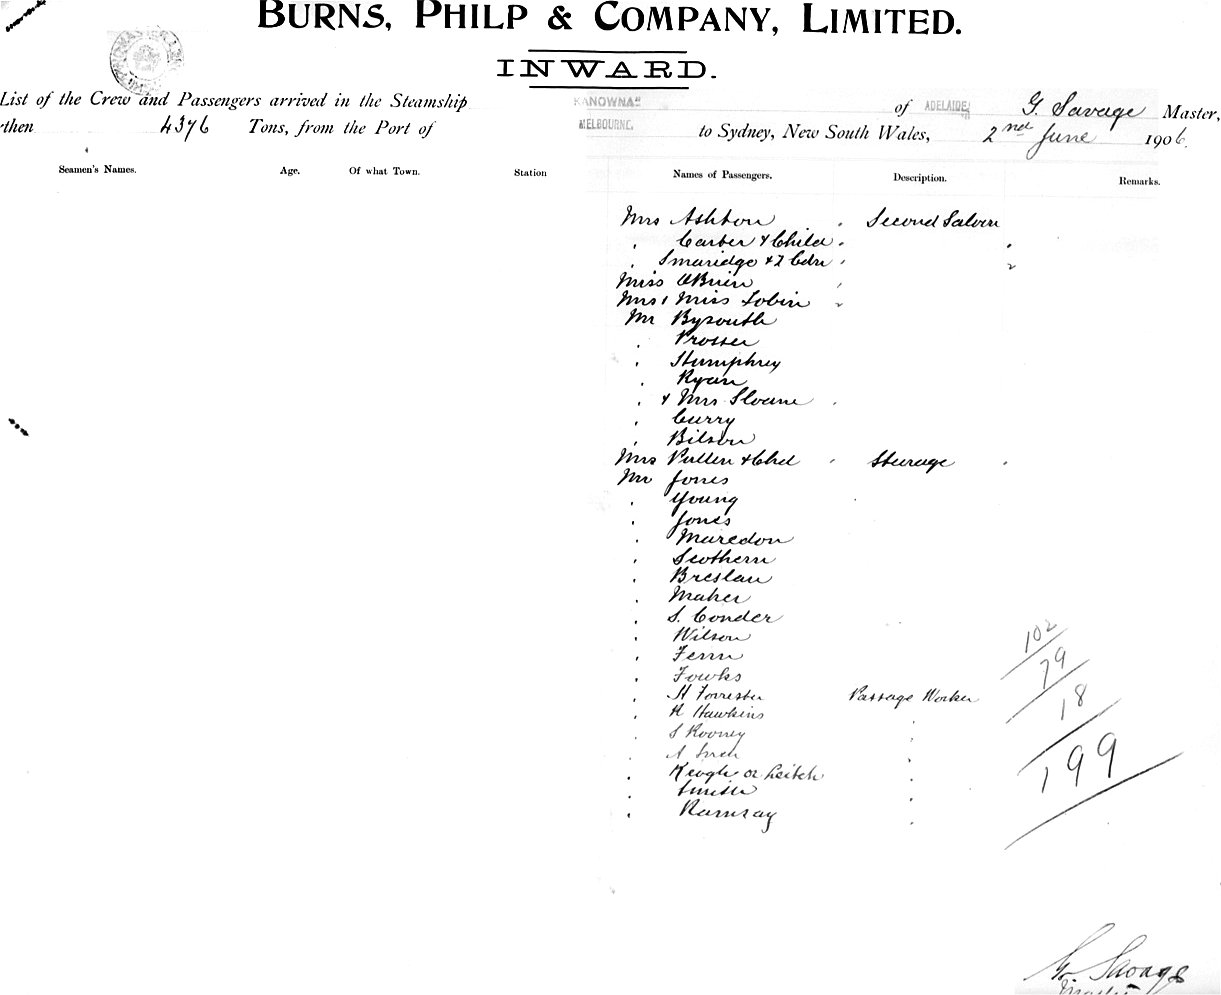 BURNS, PHILP & COMPANY, LIMITED.
INWARD.
List of the Crew and Passengers arrived in the Steamship KANOWNA of ADELAIDE, G. Savage Master,
then 4376 Tons, from the Port of MELBOURNE. to Sydney, New South Wales, 2nd June 1906.
Seamen's Names. Age. Of what Town. Station Names of Passengers. Description. Remarks.
Mrs Ashton Second Saloon
" Carter & Child
" Smaridge & 2 Cdn
Miss O'Brien
Mrs & Miss Tobin
Mr Bysouth
" Prosser
" Humphrey
" Ryan
" & Mrs Sloane
" Curry
" Bilson
Mrs Pullen & Chd Steerage
Mr Jones
" Young
" Jones
" Muredon
" Scothern
" Breslau
" Maher
" S. Conder
" Wilson
" Fenn
" Fowks
" H Forrester Passage Worker
" R Hawkins "
" S Rooney "
" A "
" Keogh or Leitch "
" Smith "
" Ramsay "
102
79
18
199
G. Savage
Master